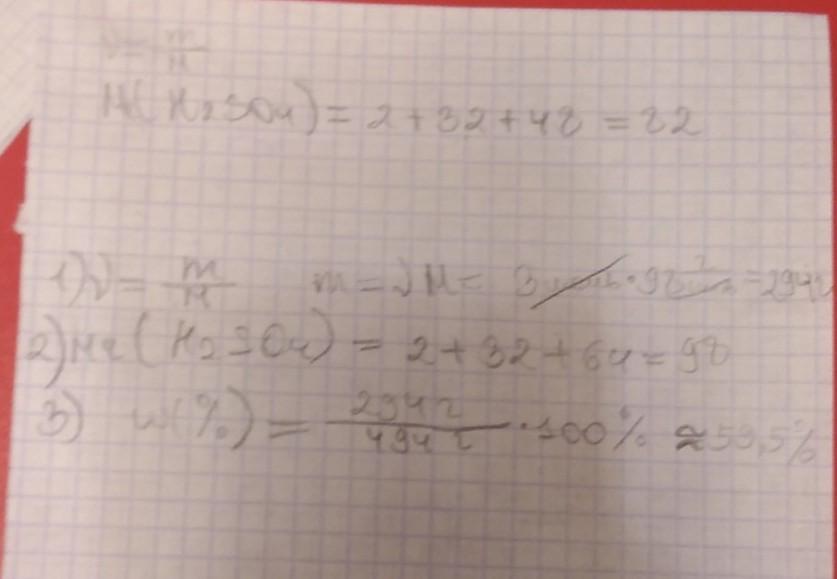 ν = m/M
M(H₂SO₄) = 2 + 32 + 48 = 82
1) ν = m/M m = νM = 3 моль · 98 г/моль = 294г
2) Mr(H₂SO₄) = 2 + 32 + 64 = 98
3) ω(%) = 294 г/494 г · 100% ≈ 59,5%